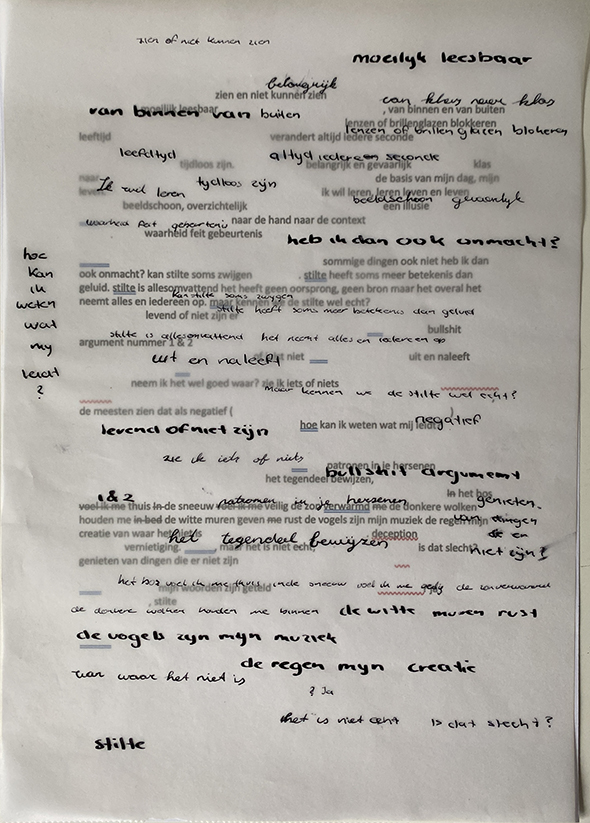 zien of niet kunnen zien
moeilijk leesbaar
belangrijk
zien en niet kunnen zien
van klas naar klas
moeilijk leesbaar , van binnen en van buiten
van binnen van buiten
lenzen of brillenglazen blokkeren
lenzen of brillenglazen blokeren
leeftijd verandert altijd iedere seconde
leefdtyd altyd iedereen seconde
tijdloos zijn. belangrijk en gevaarlijk klas
naar de basis van mijn dag, mijn
Ik wil leren tydloos zijn
leven. ik wil leren, leren leven en leven
beeldschoon gevaarlyk
beeldschoon, overzichtelijk een illusie
waarheid feit gebeurtenis naar de hand naar de context
waarheid feit gebeurtenis
heb ik dan ook onmacht?
hoe
kan
ik
weten
wat
my
leidt
?
sommige dingen ook niet heb ik dan
ook onmacht? kan stilte soms zwijgen . stilte heeft soms meer betekenis dan
geluid. stilte is allesomvattend het heeft geen oorsprong, geen bron maar overal het
kan stilte soms zwygen
neemt alles en iedereen op. maar kennen we de stilte wel echt?
stilte heeft soms meer betekenis dan geluid
levend of niet zijn er
bullshit
stilte is allesomvattend het neemt alles en iedereen op
argument nummer 1 & 2
uit en naleeft
of dat niet uit en naleeft
neem ik het wel goed waar? zie ik iets of niets
maar kennen we de stilte wel echt?
de meesten zien dat als negatief ( )
negatief
levend of niet zijn
hoe kan ik weten wat mij leidt
zie ik iets of niets
patronen in je hersenen
bullshit argument
het tegendeel bewijzen,
1 & 2
In het bos
patronen in je hersenen genieten
voel ik me thuis in de sneeuw voel ik me veilig de zon verwarmd me de donkere wolken
houden me in bed de witte muren geven me rust de vogels zijn mijn muziek de regen mijn
van dingen
creatie van waar het niet is deception
die er
het tegendeel bewijzen
vernietiging. , maar het is niet echt, is dat slecht
niet zijn?
genieten van dingen die er niet zijn
het bos voel ik me thuis inde sneeuw voel ik me de zon verwarmd
mijn woorden zijn geteld
, stilte
de donkere wolken houden me binnen de witte muren rust
de vogels zyn myn muziek
de regen myn creatie
van waar het niet is
? Ja
het is niet echt Is dat slecht?
stilte